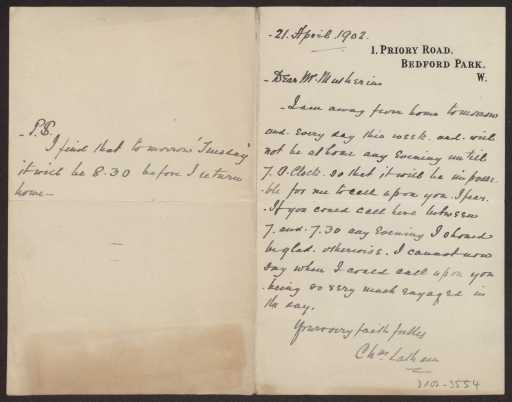 - 21. April. 1902.
1, PRIORY ROAD,
BEDFORD PARK,
W.
- Dear Mr.
- I am away from home tomorrow
and. Every day this week. and. will
not be at home any Evening until
7. O.Clock. so that it will be impossi
-ble for me to call upon you. I fear.
- If you could call here between
7. and. 7.30 any Evening I should
be glad. otherwise. I cannot now
say when I could call upon you
- being so very much engaged in
the day.
Yours very faithfully
Chas Latham
3102-3554
- P.S.
I find that tomorrow 'Tuesday'
it will be 8.30 before I return
home -